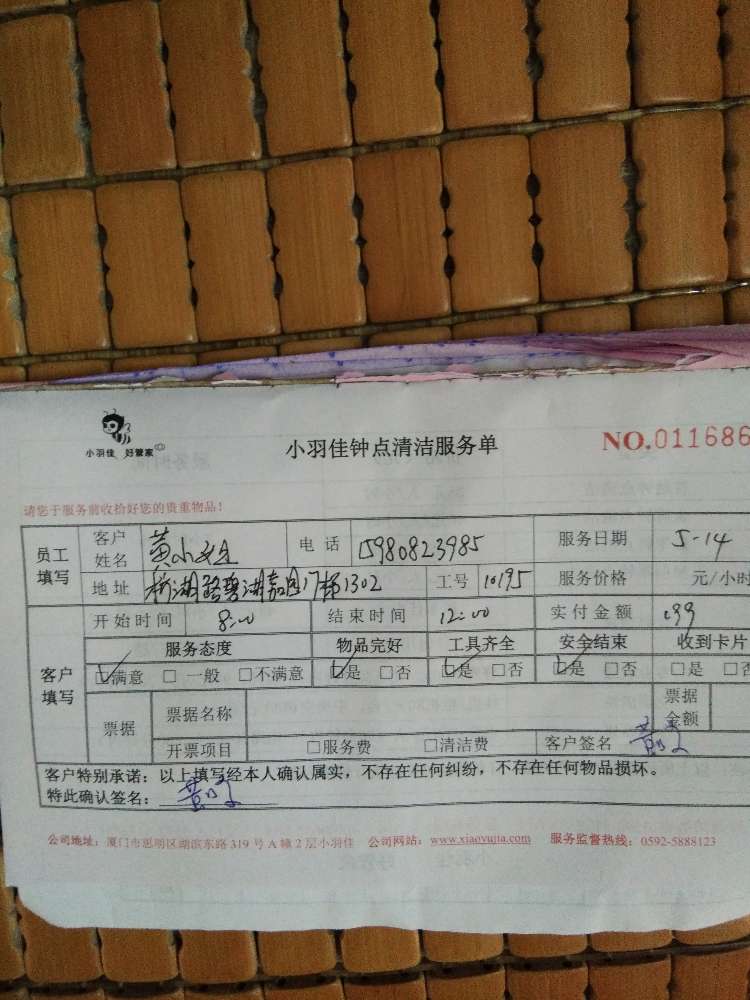 小羽佳 好管家
小羽佳钟点清洁服务单
NO.011686
请您于服务前收拾好您的贵重物品！
员工填写 客户姓名 黄小姐 电话 15980823985 服务日期 5-14
地址 湖碧湖嘉园17梯1302 工号 10195 服务价格 元/小时
客户填写 开始时间 8:00 结束时间 12:00 实付金额 199
服务态度 物品完好 工具齐全 安全结束 收到卡片
☑满意 □一般 □不满意 ☑是 □否 ☑是 □否 ☑是 □否 □是 □否
票据 票据名称 票据金额
开票项目 □服务费 □清洁费 客户签名 黄
客户特别承诺：以上填写经本人确认属实，不存在任何纠纷，不存在任何物品损坏。
特此确认签名：黄
公司地址：厦门市思明区湖滨东路 319 号 A 幢 2 层小羽佳 公司网站：www.xiaoyujia.com 服务监督热线：0592-5888123